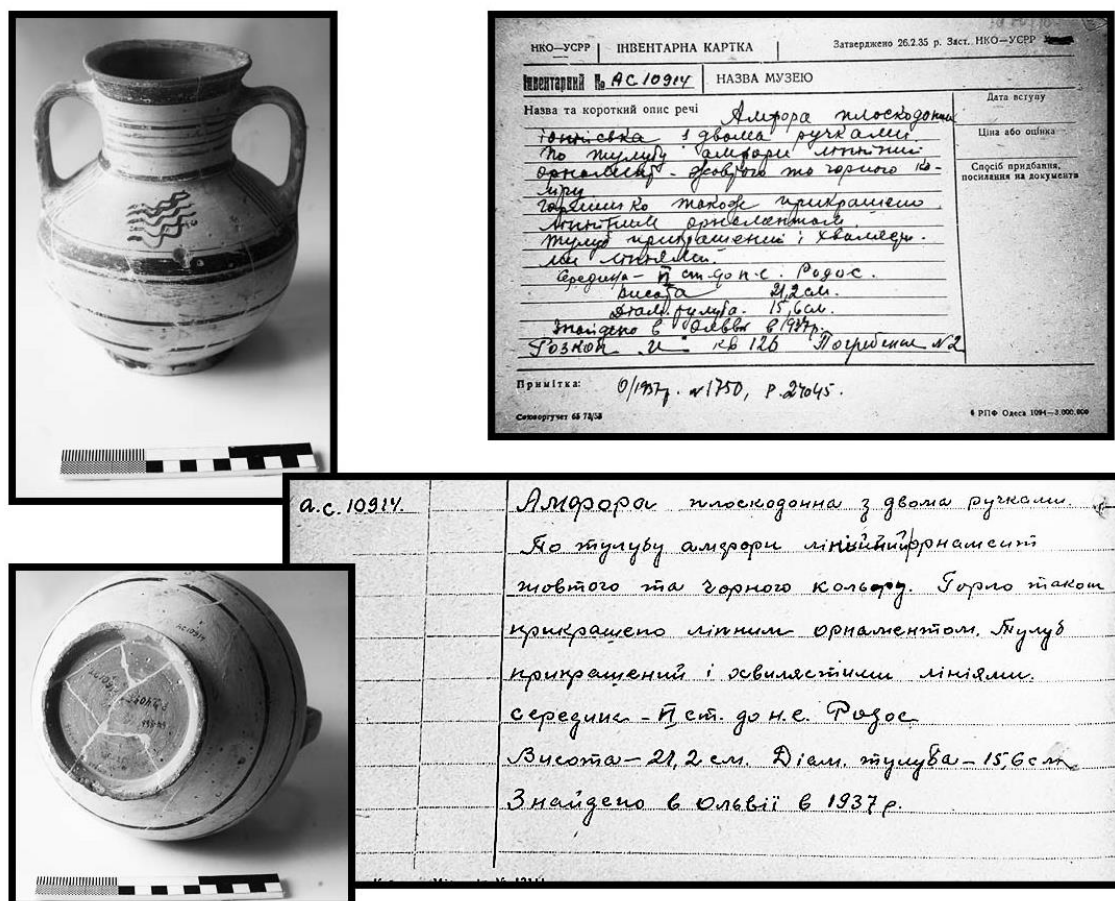 НКО—УСРР ІНВЕНТАРНА КАРТКА Затверджено 26.2.35 р. Заст. НКО—УСРР
Інвентарний № АС 10914 НАЗВА МУЗЕЮ
Дата вступу
Ціна або оцінка
Спосіб придбання, посилання на документи
Назва та короткий опис речі Амфора плоскодонна
іонійська з двома ручками
По тулубу амфори лінійний
орнамент - жовтого та чорного ко-
ліру
також прикрашено
лінійним орнаментом
тулуб прикрашений і хвиляст.
ми лініями.
Середина - II ст. до н.е. Родос.
Висота 21,2 см.
Діам. тулуба. 15,6 см.
Знайдено в Ольвії в 1937р.
Розкоп И кв 126 Погребение №2
Примітка: О/1937р. №1750, р. 24045.
Союзоргучет 65 72/35
6 РПФ Одеса 1094—3.000.000
а.с. 10914. Амфора плоскодонна з двома ручками.
По тулубу амфори лінійний орнамент
жовтого та чорного кольору. Горло також
прикрашено лінним орнаментом. Тулуб
прикрашений і хвилястими лініями.
середина - II ст. до н.е. Родос
Висота - 21,2 см. Діам. тулуба - 15,6 см
Знайдено в Ольвії в 1937 р.
АС 10914